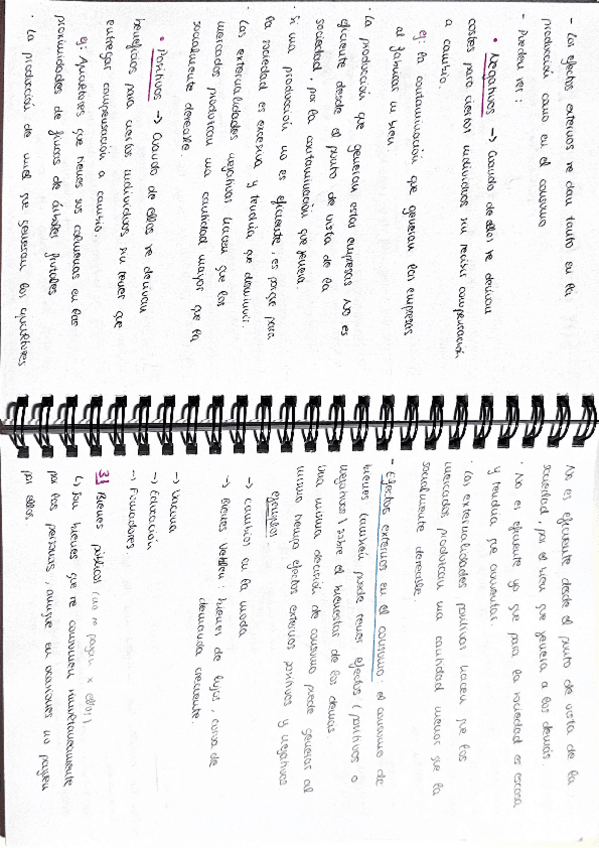 - Los efectos externos se dan tanto en la
producción como en el consumo
- Pueden ser:
• Negativos → Cuando de ellos se derivan
costes para ciertos individuos sin recibir compensación
a cambio.
eg: la contaminación que generan las empresas
al fabricar un bien.
· La producción que generan estas empresas no es
eficiente desde el punto de vista de la
sociedad, por la contaminación que genera.
· Si una producción no es eficiente, es porque para
la sociedad es excesiva y tendría que disminuir.
· Las externalidades negativas hacen que los
mercados produzcan una cantidad mayor que la
socialmente deseable.
• Positivos → Cuando de ellos se derivan
beneficios para ciertos individuos sin tener que
entregar compensación a cambio.
eg: Apicultores que tienen sus colmenas en las
proximidades de fincas de árboles frutales
· La producción de miel que generan los apicultores
No es eficiente desde el punto de vista de la
sociedad, por el bien que genera a los demás.
· No es eficiente ya que para la sociedad es escasa
y tendría que aumentar.
· Las externalidades positivas hacen que los
mercados produzcan una cantidad menor que la
socialmente deseable.
- Efectos externos en el consumo: el consumo de
bienes también puede tener efectos (positivos o
negativos) sobre el bienestar de los demás.
Una misma decisión de consumo puede generar al
mismo tiempo efectos externos positivos y negativos
ejemplos
→ Cambios en la moda
→ Bienes Veblen: bienes de lujos, curva de
demanda creciente.
→ Vacuna
→ Educación
→ Fumadores.
3) Bienes públicos (no se pagan x ellos).
↳ Son bienes que se consumen simultáneamente
por las personas, aunque en ocasiones no paguen
por ellos.